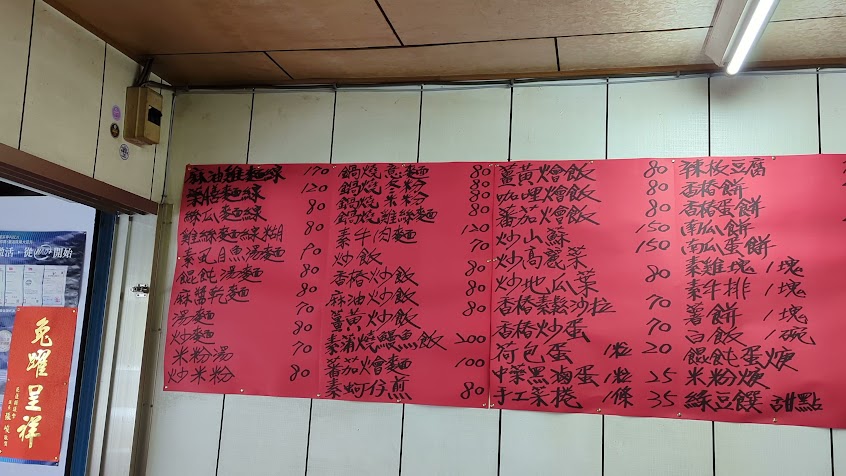 麻油雞麵線 170
藥膳麵線 120
絲瓜麵線 80
雞絲麵線糊 80
素虱目魚湯麵 90
餛飩湯麵 80
麻醬乾麵 70
湯麵 70
炒麵 80
米粉湯 70
炒米粉 80
鍋燒意麵 80
鍋燒冬粉 80
鍋燒米粉 80
鍋燒雞絲麵 80
素牛肉麵 120
炒飯 70
香椿炒飯 80
麻油炒飯 80
薑黃炒飯 80
素蒲燒鰻魚飯 200
蕃茄燴麵 100
素蚵仔煎 80
薑黃燴飯 80
咖哩燴飯 80
蕃茄燴飯 80
炒山蘇 150
炒高麗菜 150
炒地瓜葉 80
香椿素鬆沙拉 70
香椿炒蛋 70
荷包蛋 1粒 20
中藥黑滷蛋 1粒 25
手工菜捲 1條 35
辣椒豆腐
香椿餅
香椿蛋餅
南瓜餅
南瓜蛋餅
素雞塊 1塊
素牛排 1塊
薯餅 1塊
白飯 1碗
餛飩蛋羹
米粉羹
綠豆饌 甜點
兔躍呈祥